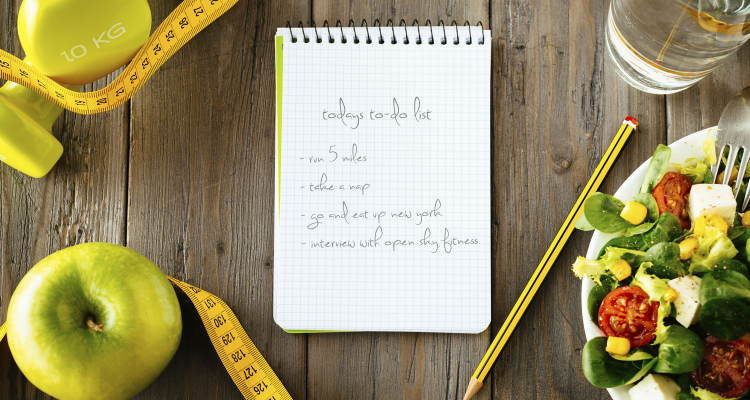 1.0 KG
todays to-do list
- run 5 miles
- take a nap
- go and eat up new york
- interview with open sky fitness
131
130
129
128
127
126